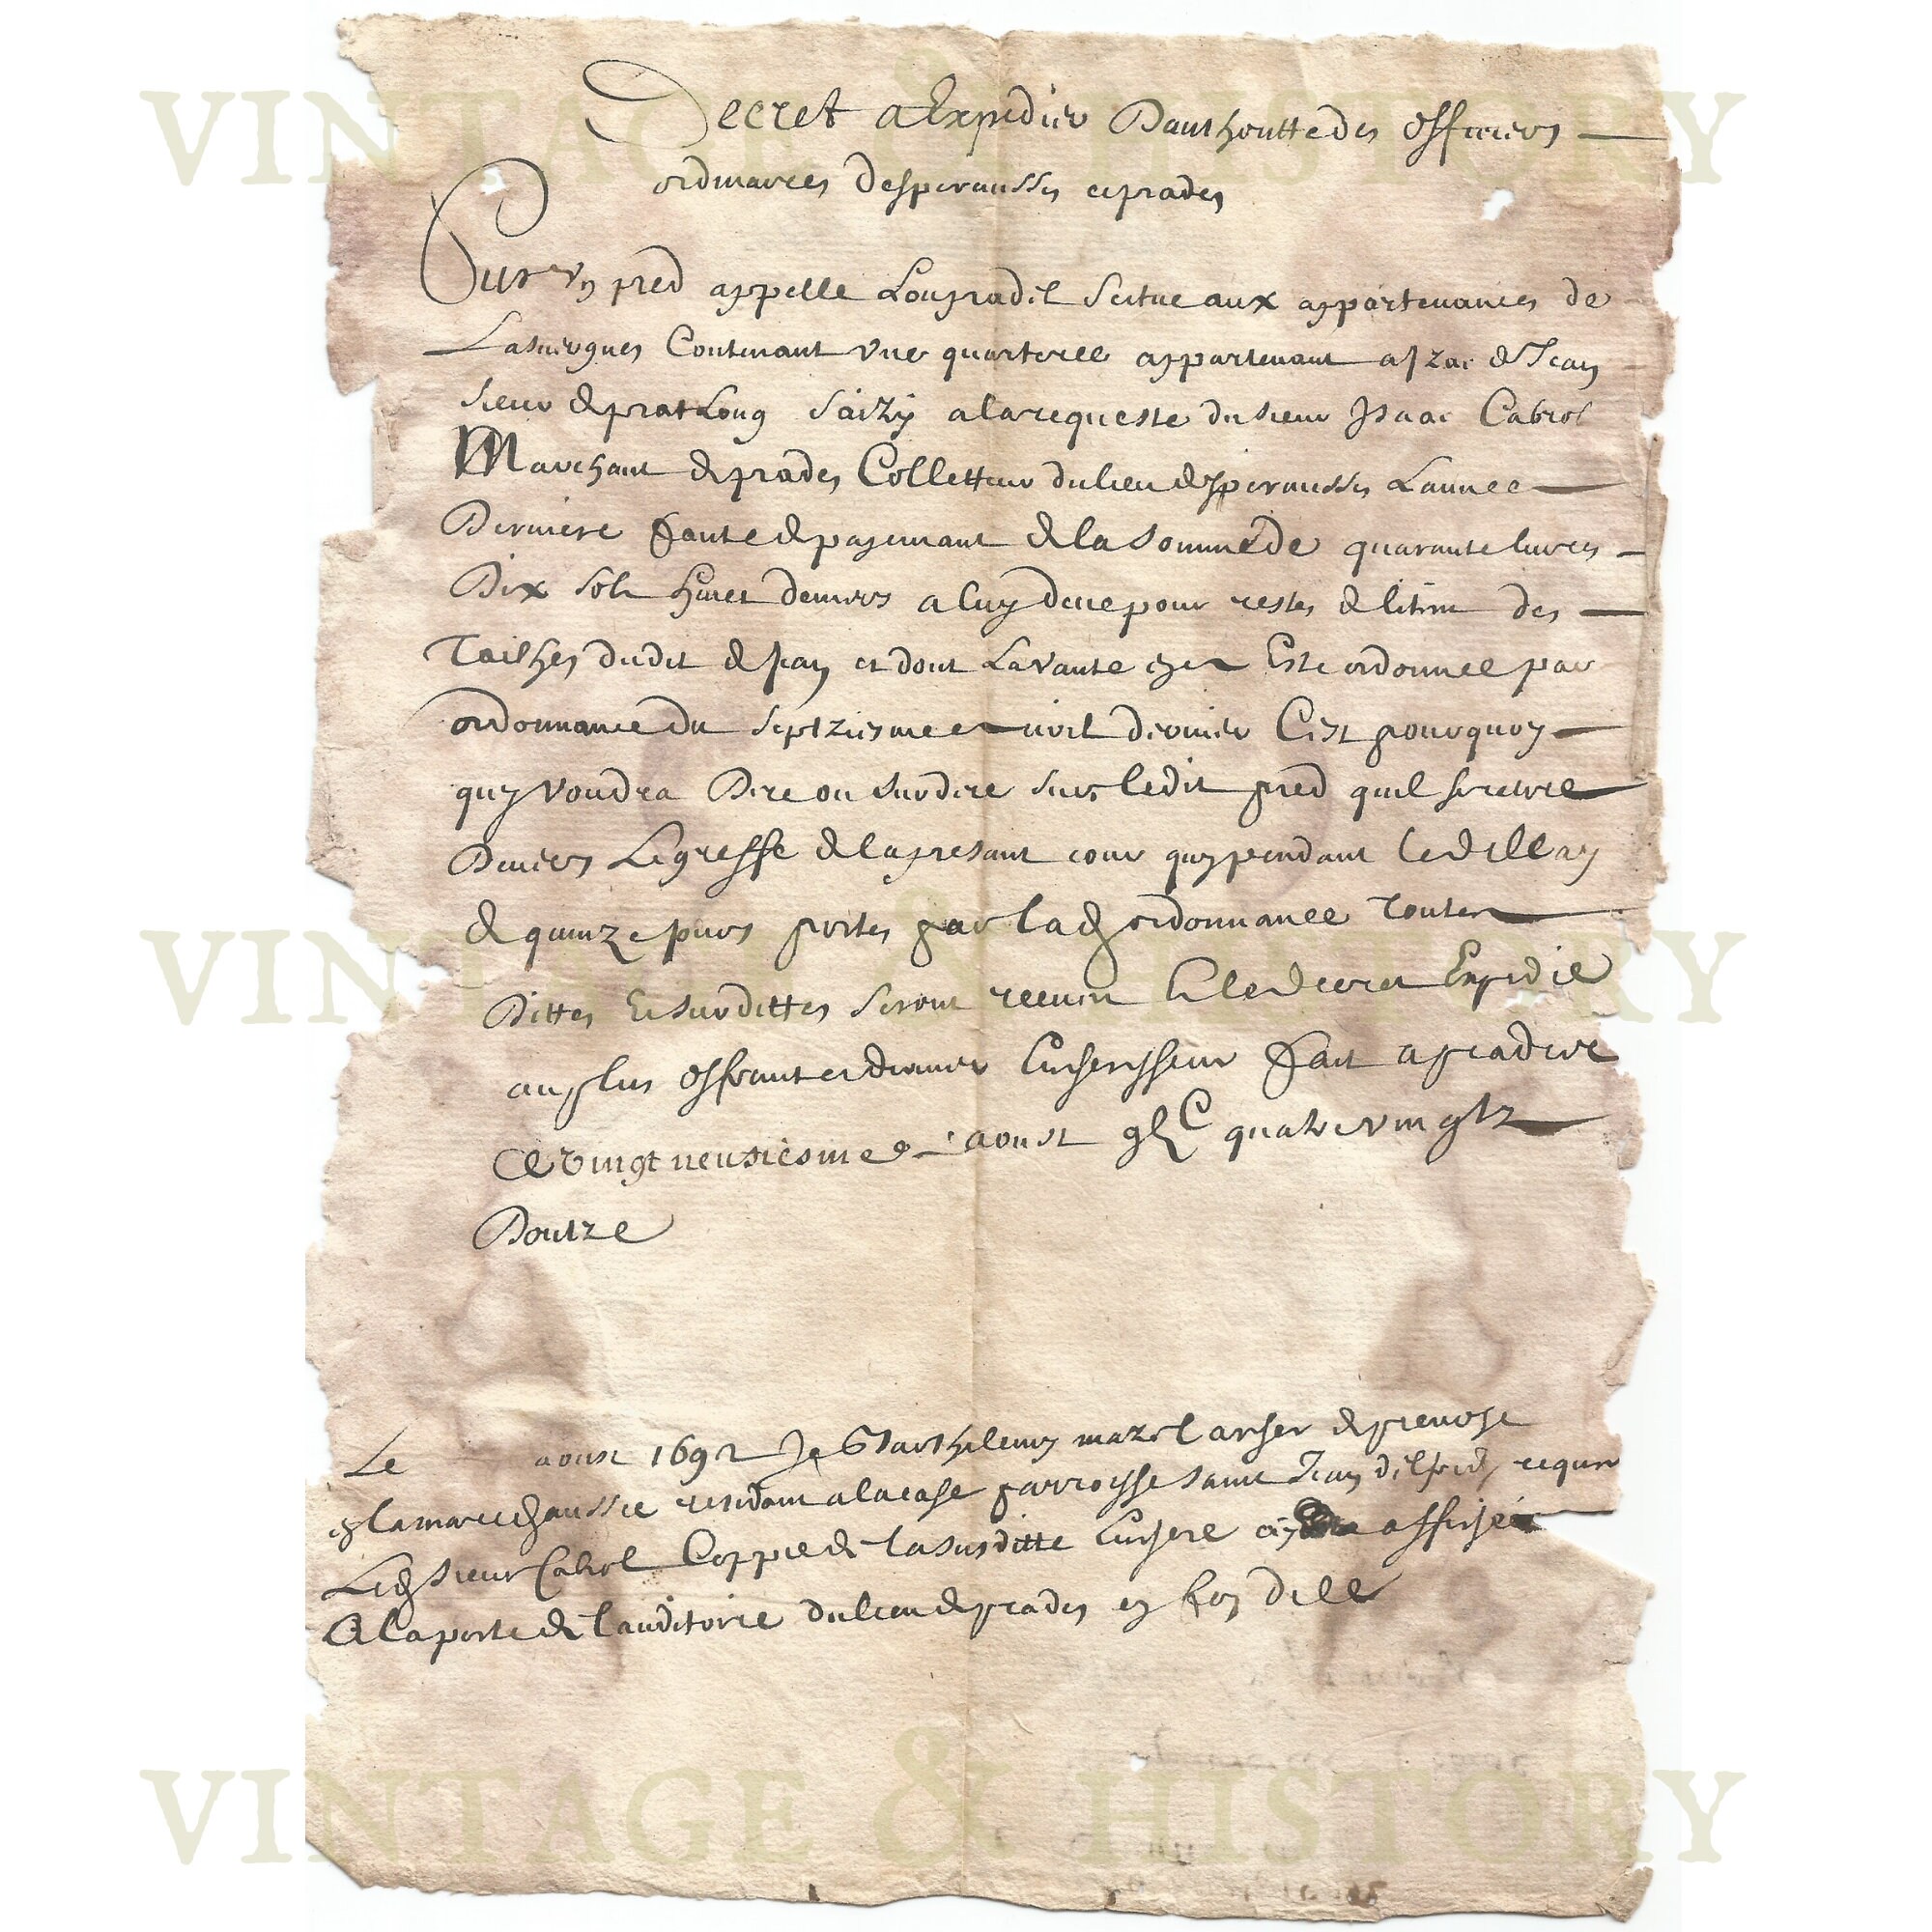 VINTAGE & HISTORY
Decret a Expedier Dauthoritte des officiers
ordinaires desperausses et prades
Sur un pred appelle Loupradel scitue aux appartenances de
Lasvergnes Contenant une quarteree appartenant a Izac & Jean
sieur de pratLong saizy a la requeste du sieur Isaac Cabrol
Marchant de prades Colletteur du lieu desperausses Lannee
Derniere faute de payemant de la somme de quarante livres
Dix sols huict deniers a luy deue pour restes de litim des
Tailhes dudit de Jean et dont La vante en Este ordonnee par
ordonnance du septziesme avril dernier C'est pourquoy
quy voudra Dire ou surdire sur ledit pred quil se retire
Devers Le greffe de la presant cour quy pendant le dellay
de quinze jours portes par lad ordonnance Toutes
Dittes et surdittes seront receues & le decret Expedie
au plus offrant et dernier Encherisseur fait a prades ce
Ce vingt neufsiesme aoust quatre vingtz
Doutze
VINTAGE & HISTORY
Le aoust 1692 Je Barthelemy mazel archer de prevost
& la marechaussee residant a lacase parroysse saint Jean delfrech requis
Led sieur Cabrol Coppie de la susditte Enchere ay affichée
A la porte de l'auditoire du lieu de prades en foy de ce
VINTAGE & HISTORY